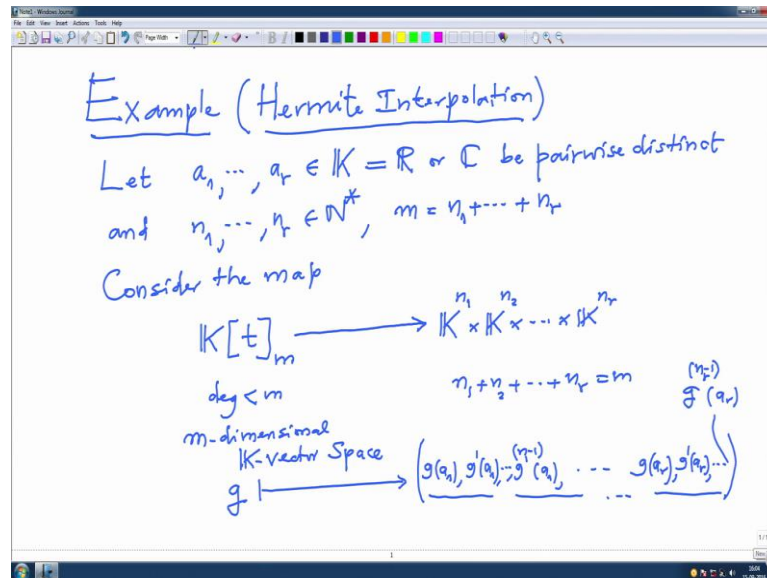 Note1 - Windows Journal
File Edit View Insert Actions Tools Help
Page Width
B I
Example (Hermite Interpolation)
Let a₁, ..., aᵣ ∈ 𝕂 = ℝ or ℂ be pairwise distinct
and n₁, ..., nᵣ ∈ ℕ*, m = n₁ + ... + nᵣ
Consider the map
𝕂[t]ₘ ⟶ 𝕂ⁿ¹ × 𝕂ⁿ² × ... × 𝕂ⁿʳ
deg < m n₁ + n₂ + ... + nᵣ = m g⁽ⁿʳ⁻¹⁾(aᵣ)
m-dimensional
𝕂-vector Space
g ⟼ (g(a₁), g'(a₁), ..., g⁽ⁿ¹⁻¹⁾(a₁), ... g(aᵣ), g'(aᵣ), ...)
...
1/1
1
16:04